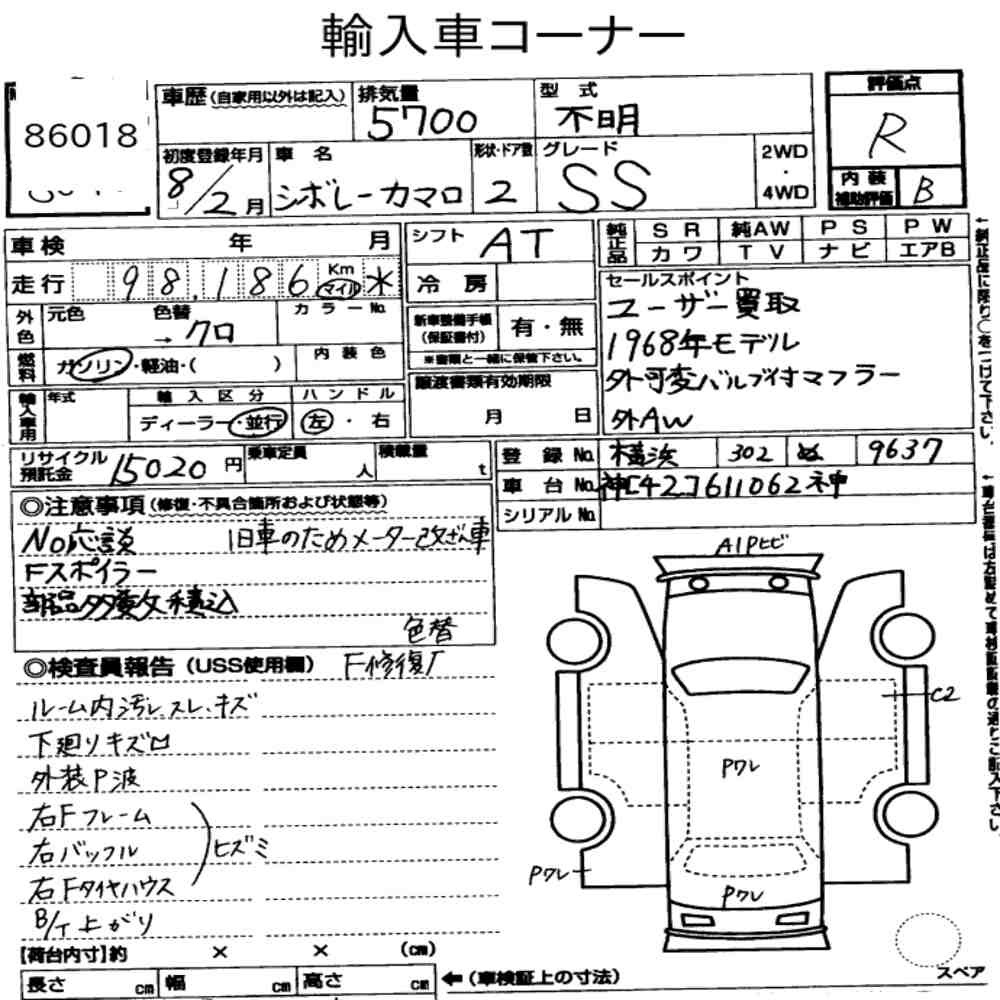 輸入車コーナー
86018
車歴 (自家用以外は記入)
排気量 5700
型式 不明
評価点 R
内装補助評価 B
初度登録年月 8/2月
車名 シボレーカマロ
形状・ドア数 2
グレード SS
2WD・4WD
車検 年 月
シフト AT
純正品 SR 純AW PS PW
カワ TV ナビ エアB
走行 98,186 Km マイル *
冷房
セールスポイント
ユーザー買取
1968年モデル
外可変バルブ付マフラー
外AW
外色 元色 色替 → クロ カラーNo.
新車整備手帳(保証書付) 有・無
※書類と一緒に保管下さい。
燃料 ガソリン・軽油・( )
内装色
譲渡書類有効期限
月 日
輸入車用 年式
輸入区分 ディーラー・並行
ハンドル 左・右
リサイクル預託金 15020円
乗車定員 人
積載量 t
登録No. 横浜 302 ぬ 9637
車台No. 神[42]611062神
シリアルNo.
◎注意事項 (修復・不具合箇所および状態等)
No応談 旧車のためメーター改ざん車
Fスポイラー
部品多数積込
色替
◎検査員報告 (USS使用欄) F修復歴
ルーム内汚レ.スレ.キズ
下廻りキズロ
外装P波
右Fフレーム
右バッフル ヒズミ
右Fタイヤハウス
B/T上がり
A1Pヒビ
C2
Pワレ
Pワレ
Pワレ
スペア
【荷台内寸】約 × × (cm)
長さ cm 幅 cm 高さ cm
←(車検証上の寸法)
←純正品に限り○をつけて下さい。